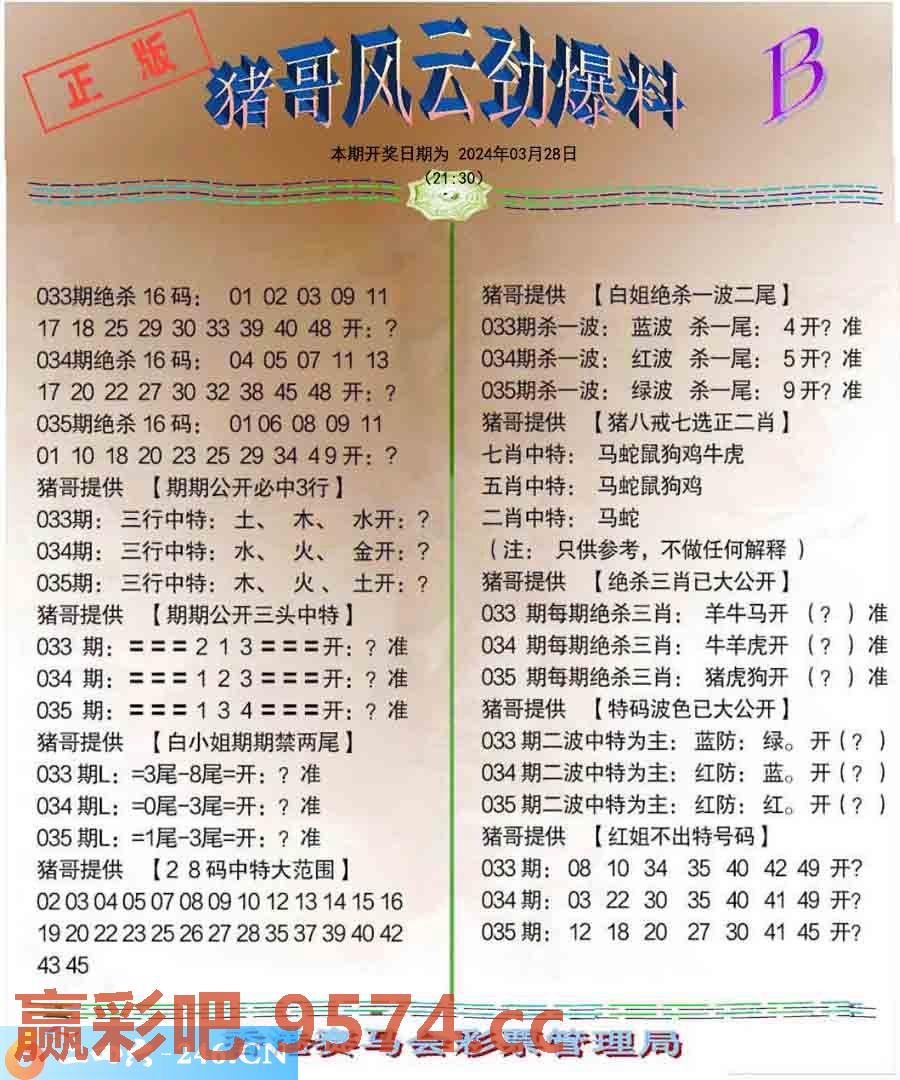 正版
猪哥风云劲爆料
B
本期开奖日期为 2024年03月28日
(21:30)
033期绝杀 16 码： 01 02 03 09 11
17 18 25 29 30 33 39 40 48 开：？
034期绝杀 16 码： 04 05 07 11 13
17 20 22 27 30 32 38 45 48 开：？
035期绝杀 16 码： 01 06 08 09 11
01 10 18 20 23 25 29 34 4 9 开：？
猪哥提供 【期期公开必中3行】
033期： 三行中特： 土、 木、 水开：？
034期： 三行中特： 水、 火、 金开：？
035期： 三行中特： 木、 火、 土开：？
猪哥提供 【期期公开三头中特】
033 期：＝＝＝2 1 3＝＝＝开：？准
034 期：＝＝＝1 2 3＝＝＝开：？准
035 期：＝＝＝1 3 4＝＝＝开：？准
猪哥提供 【白小姐期期禁两尾】
033 期L：=3尾-8尾=开：？准
034 期L：=0尾-3尾=开：？准
035 期L：=1尾-3尾=开：？准
猪哥提供 【2 8 码中特大范围】
02 03 04 05 07 08 09 10 12 13 14 15 16
19 20 22 23 25 26 27 28 35 37 39 40 42
43 45
猪哥提供 【白姐绝杀一波二尾】
033期杀一波： 蓝波 杀一尾： 4 开？准
034期杀一波： 红波 杀一尾： 5 开？准
035期杀一波： 绿波 杀一尾： 9 开？准
猪哥提供 【猪八戒七选正二肖】
七肖中特： 马蛇鼠狗鸡牛虎
五肖中特： 马蛇鼠狗鸡
二肖中特： 马蛇
（注： 只供参考，不做任何解释 ）
猪哥提供 【绝杀三肖已大公开】
033 期每期绝杀三肖： 羊牛马开 （？ ）准
034 期每期绝杀三肖： 牛羊虎开 （？ ）准
035 期每期绝杀三肖： 猪虎狗开 （？ ）准
猪哥提供 【特码波色已大公开】
033 期二波中特为主： 蓝防： 绿。 开（？ ）
034 期二波中特为主： 红防： 蓝。 开（？ ）
035 期二波中特为主： 红防： 红。 开（？ ）
猪哥提供 【红姐不出特号码】
033 期： 08 10 34 35 40 42 49 开?
034 期： 03 22 30 35 40 41 49 开?
035 期： 12 18 20 27 30 41 45 开?
赢彩吧 9574.cc
赛马会彩票管理局